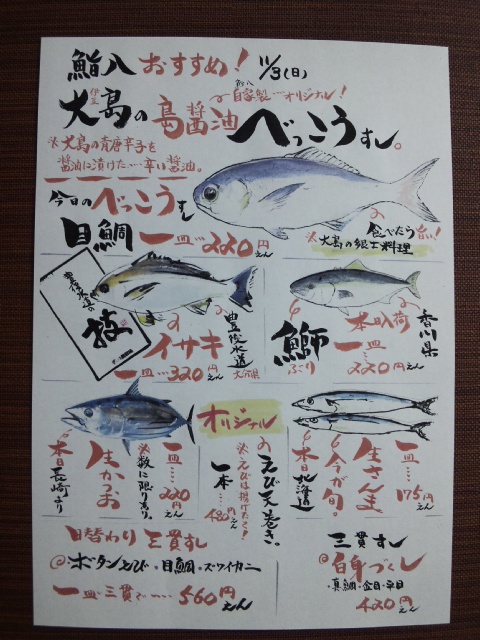 鮨八 おすすめ！ 11/3(日)
鮨八
自家製…オリジナル！
伊豆
大島の島醤油べっこうすし。
※大島の青唐辛子を
醤油に漬けた…辛い醤油。
今日のべっこうすし
目鯛 一皿…220円
えん
食べたら旨い！
※大島の郷土料理
豊後水道の
技
イサキ
豊後水道
大分県
一皿…320円
えん
鰤
ぶり
本日入荷
香川県
一皿…220円
えん
本日長崎より
生かつお
※数に限り有り。
一皿…220円
えん
オリジナル
えび天巻き。
※えびは揚げたて！
一本…480円
えん
本日北海道
今が旬
生さんま
一皿…175円
えん
日替わり三貫すし
ボタンえび・目鯛・ズワイカニ
一皿・三貫で……560円
えん
三貫すし
白身づくし
・真鯛・金目・平目
420円
えん